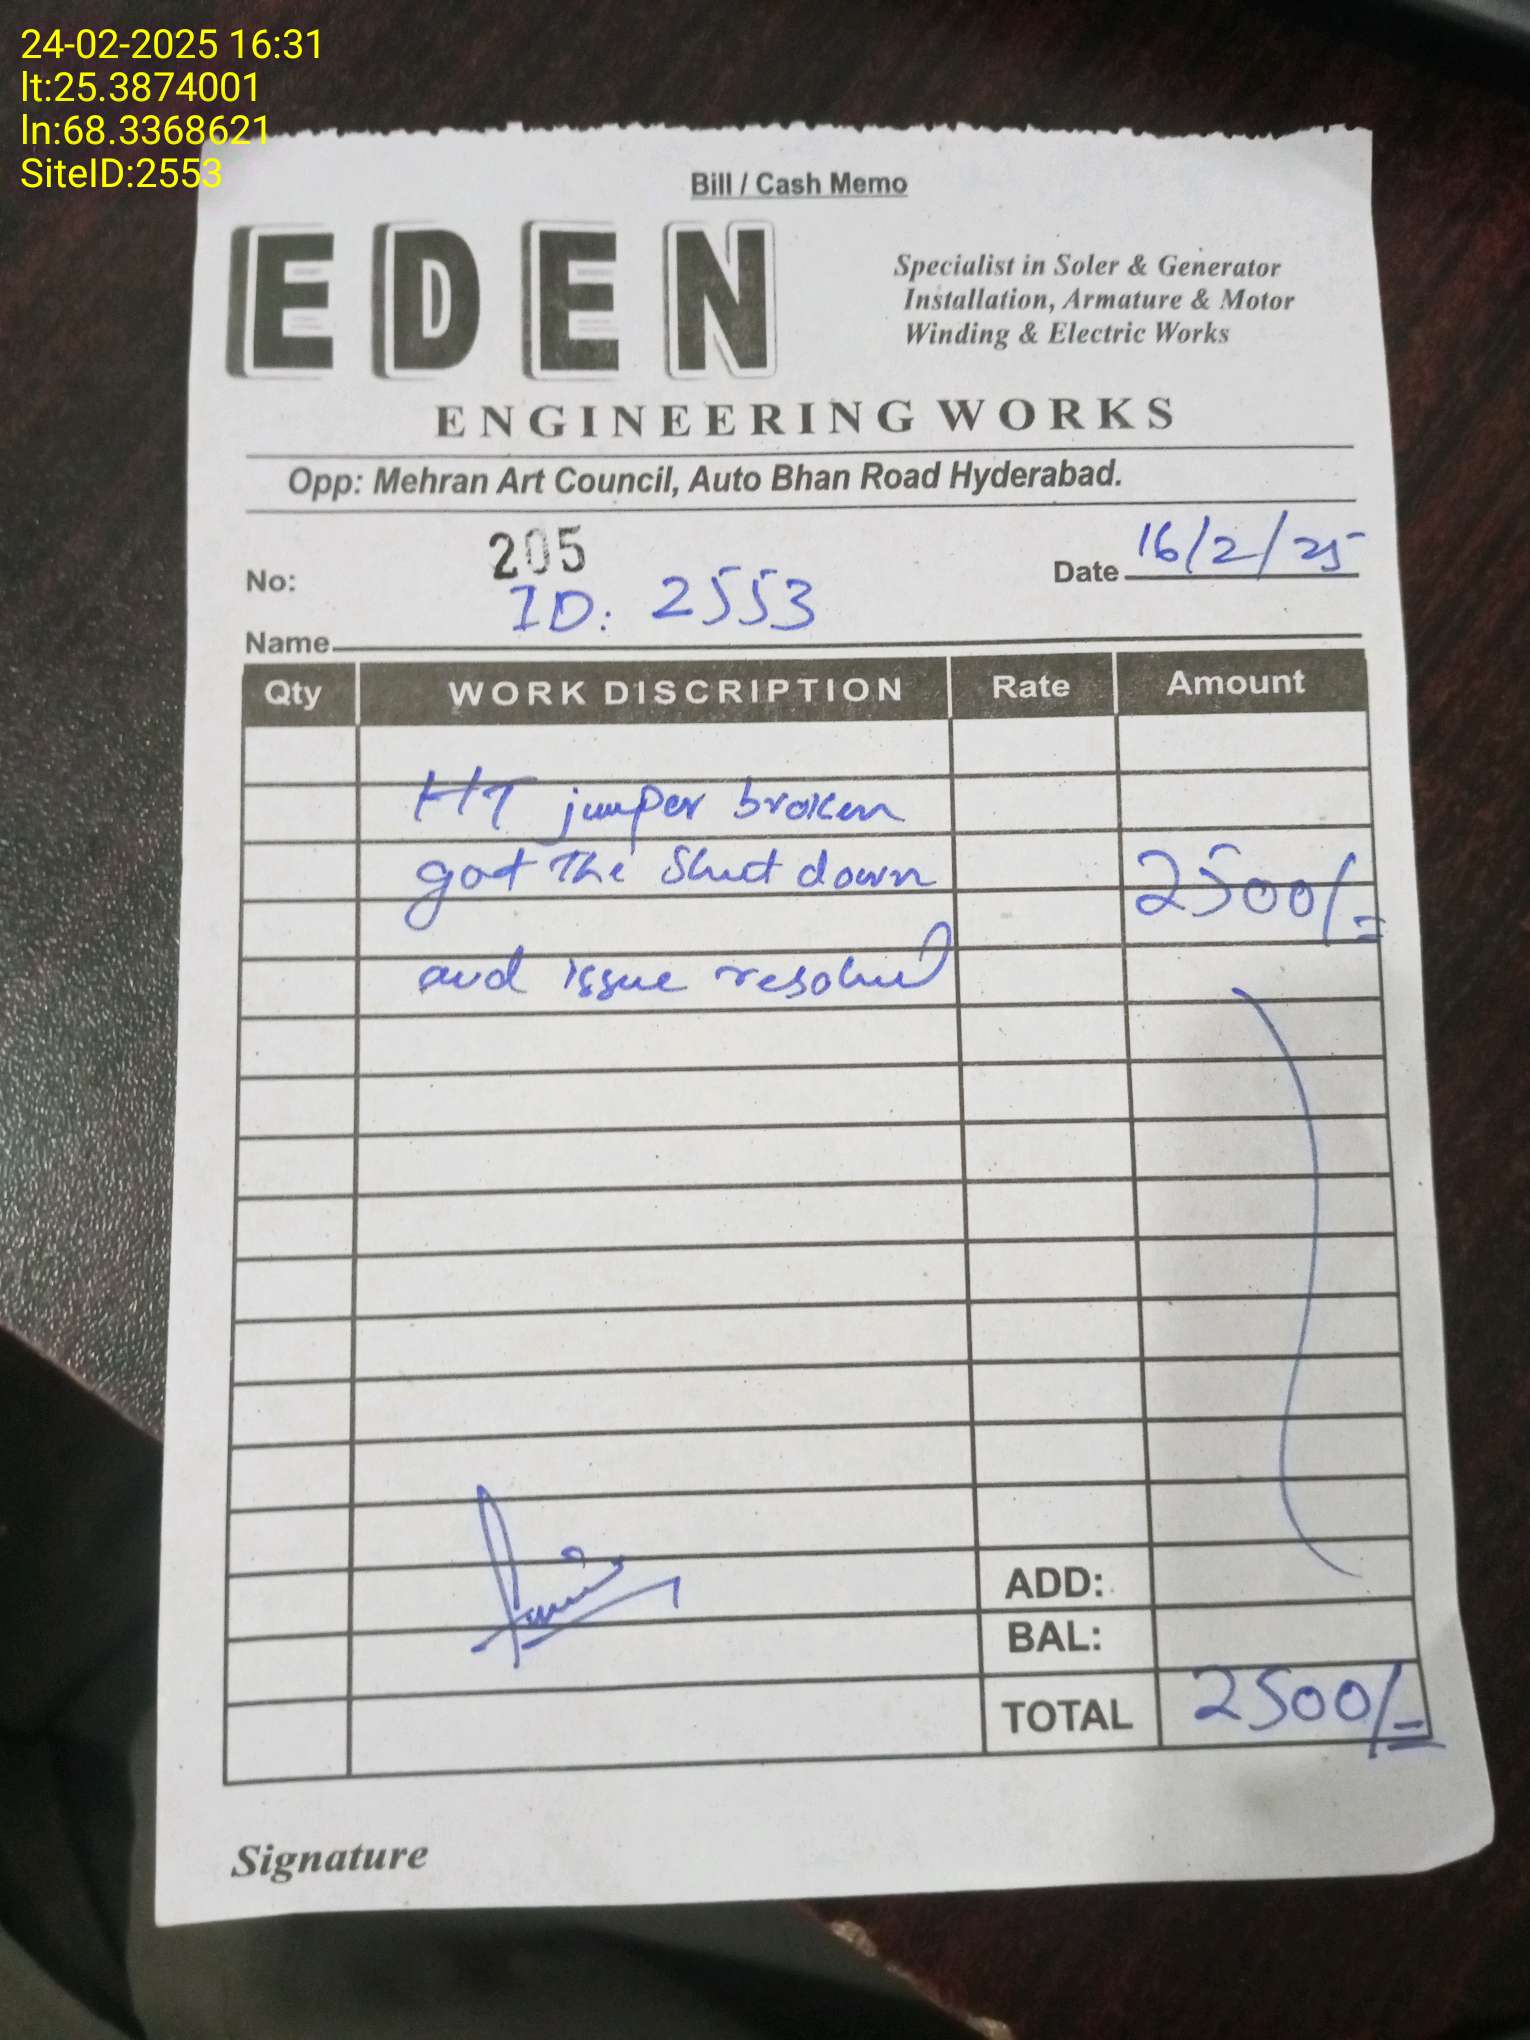 24-02-2025 16:31
lt:25.3874001
ln:68.3368621
SiteID:2553
Bill / Cash Memo
EDEN
Specialist in Soler & Generator
Installation, Armature & Motor
Winding & Electric Works
ENGINEERING WORKS
Opp: Mehran Art Council, Auto Bhan Road Hyderabad.
No: 205
Date 16/2/25
ID: 2553
Name
Qty WORK DISCRIPTION Rate Amount
HT jumper broken
got The Shut down 2500/=
and issue resolved
ADD:
BAL:
TOTAL 2500/=
Signature